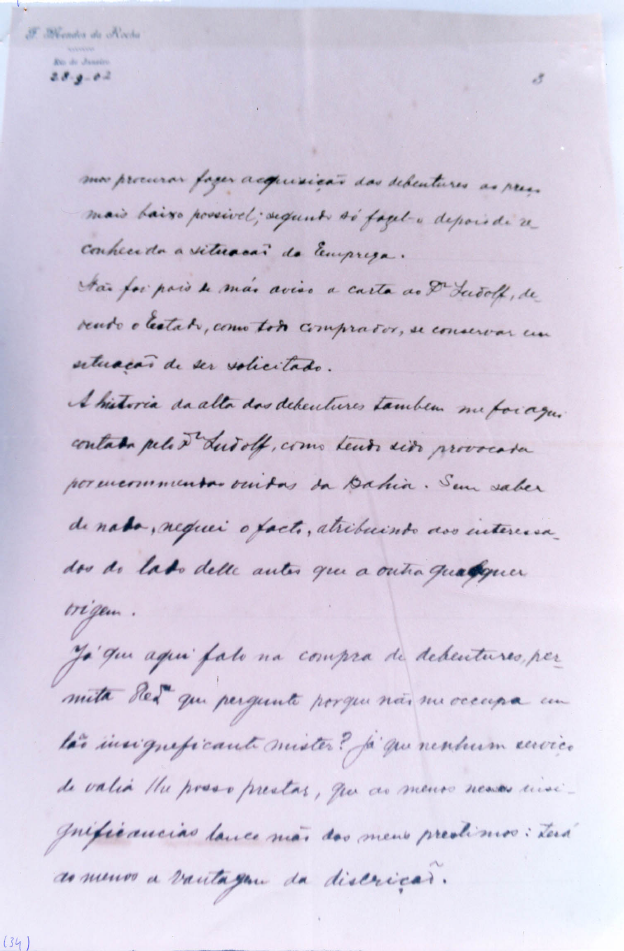 F. Mendes da Rocha
Rio de Janeiro
28-9-02
3
mos procurar fazer acquisição das debentures ao preço
mais baixo possivel; segundo só fazel-o depois de re-
conhecida a situacaõ da Eemprega.
Não foi pois de máo aviso a carta ao Dr Ludolf, de-
vendo o Estado, como todo comprador, se conservar em
situação de ser solicitado.
A historia da alta das debentures tambem me foi aqui
contada pelo Dr Ludolf, como tendo sido provocada
por encommendas vindas da Bahia. Sem saber
de nada, neguei o facto, atribuindo aos interessa-
dos do lado delle antes que a outra qualquer
origem.
Já que aqui falo na compra de debentures, per-
mita que pergunte porque não me occupa em
tão insigneficante mister? Já que nenhum serviço
de valia lhe posso prestar, que ao menos nessas insi-
gnificancias lance mão dos meus prestimos: terá
ao menos a vantagem da discrição.
(34)